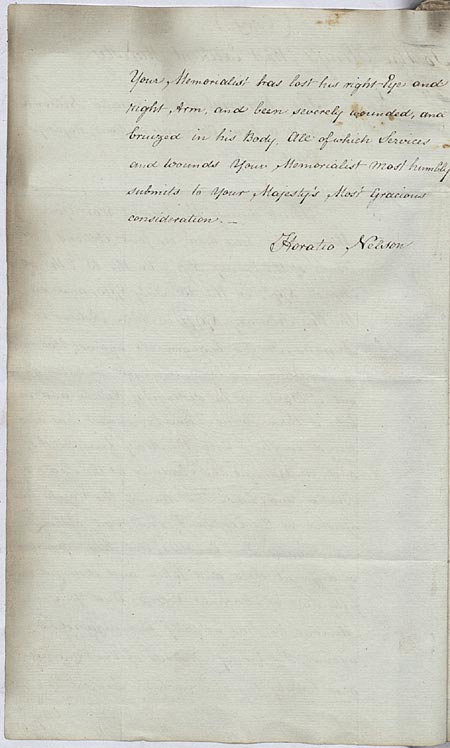 Your Memorialist has lost his right Eye and
right Arm, and been severely wounded, and
bruized in his Body, All of which Services
and wounds Your Memorialist most humbly
submits to Your Majesty's Most Gracious
consideration. —
Horatio Nelson